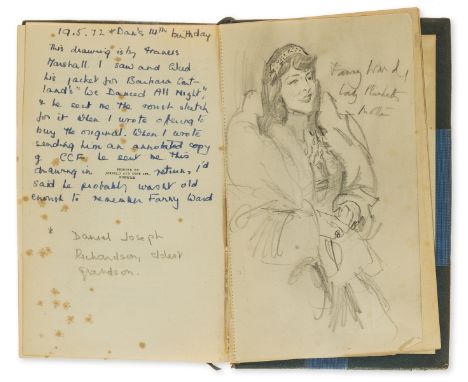 19.5.72 * Dan's 14th birthday
This drawing is by Francis
Marshall. I saw and liked
his jacket for Barbara Cart-
land's "We Danced All Night"
& he sent me the rough sketch
for it when I wrote offering to
buy the original. When I wrote
sending him an annotated copy
of CCF he sent me this
drawing in return, I'd
said he probably wasn't old
enough to remember Fanny Ward
PRINTED BY
NORWICH
*
Daniel Joseph
Richardson, eldest
grandson.
Fanny Ward,
Lady Plunket's
mother